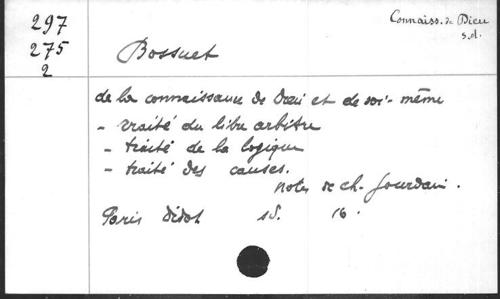 297
275
2
Connaiss. de Dieu
s.d.
Bossuet
de la connaissance de Dieu et de soi-même
- traité du libre arbitre
- traité de la logique
- traité des causes.
notes de Ch. Jourdain.
Paris Didot sd. 16.